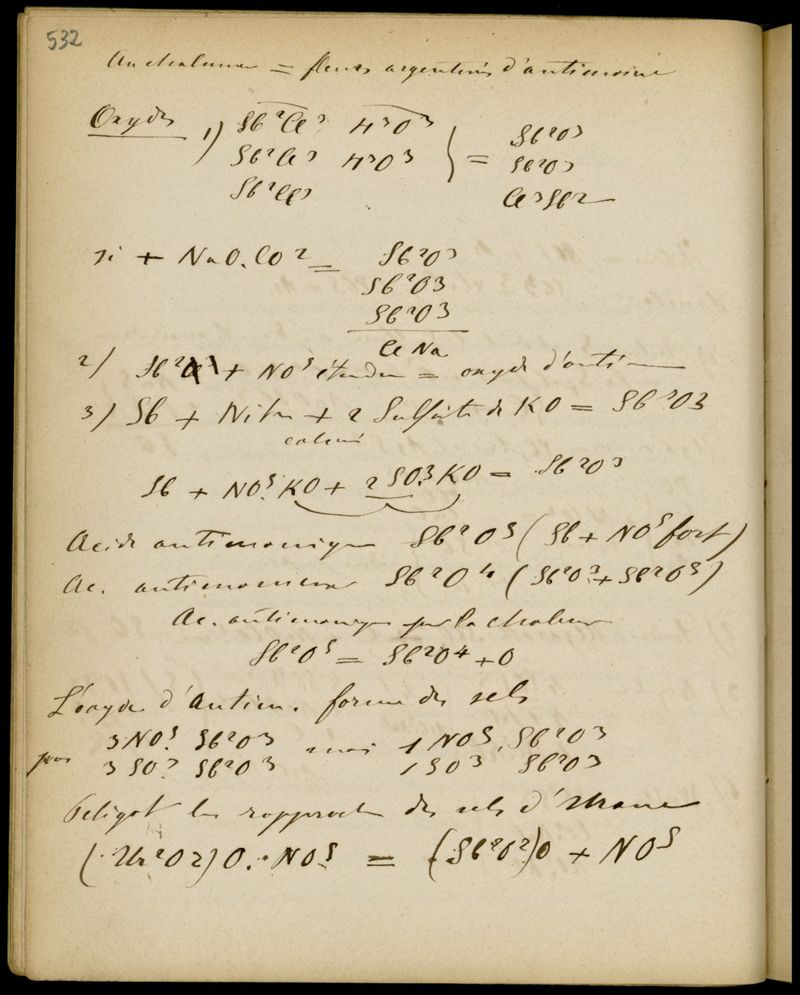 532
Au chalumeau = fleurs argentines d'antimoine
Oxydes 1) Sb²Cl³ H³O³ } = Sb²O³
Sb²Cl³ H³O³ Sb²O³
Sb²Cl³ Cl³Sb²
si + NaO.CO² = Sb²O³
Sb²O3
Sb²O3
Cl Na
2) Sb² + NO⁵ étendu = oxyde d'antim
3) Sb + Nitre + 2 Sulfate de KO = Sb²O3
calciné
Sb + NO⁵.KO + 2 SO³.KO = Sb²O³
Acide antimonique Sb²O⁵ (Sb + NO⁵ fort)
Ac. antimonieux Sb²O⁴ (Sb²O³ + Sb²O⁵)
Ac. antimonique par la chaleur
Sb²O⁵ = Sb²O4 + O
L'oxyde d'Antim. forme des sels
pas 3NO⁵ Sb²O³ mais 1 NO⁵, Sb²O³
3 SO³ Sb²O³ 1 SO³ Sb²O³
Peligot les rapproche des sels d'Urane
(Ur²O2)O.NO⁵ = (Sb²O²)O + NO⁵